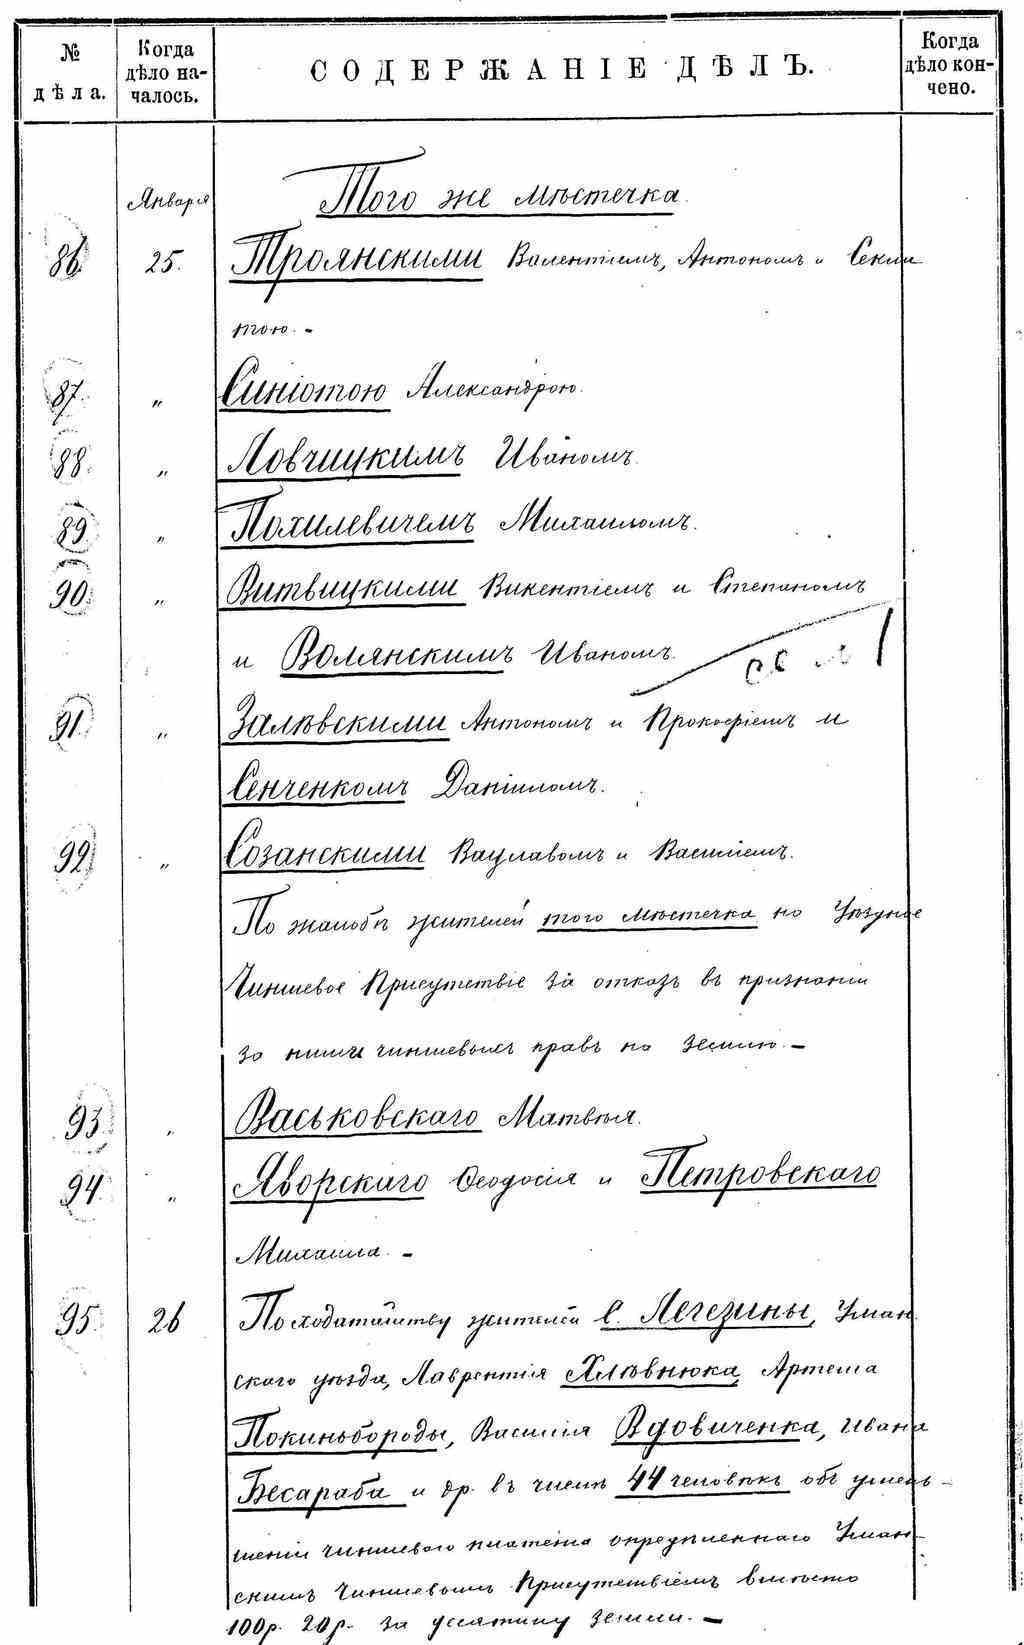 № дѣла.
Когда дѣло на-чалось.
СОДЕРЖАНІЕ ДѢЛЪ.
Когда дѣло кон-чено.
Января Того же мѣстечка.
86. 25. Троянскими Валентіемъ, Антономъ и Секли
тою. -
87. " Синіотою Александрою.
88. " Ловчицкимъ Иваномъ.
89. " Похилевичемъ Михаиломъ.
90. " Витвицкими Викентіемъ и Степаномъ
и Волянскимъ Иваномъ.
91. " Залѣвскими Антономъ и Прокофіемъ и
Сенченкомъ Даніиломъ.
92. " Созанскими Вацлавомъ и Василіемъ.
По жалобѣ жителей того мѣстечка на Уѣздное
Чиншевое Присутствіе за отказъ въ признаніи
за ними чиншевыхъ правъ на землю. -
93. " Васьковскаго Матвѣя.
94. " Яворскаго Ѳеодосія и Петровскаго
Михаила. -
95. 26 По ходатайству жителей с. Легезины, Уман
скаго уѣзда, Лаврентія Хлѣвнюка, Артема
Покиньбороды, Василія Вдовиченка, Ивана
Бесараба и др. въ числѣ 44 человѣкъ объ умень-
шеніи чиншеваго платежа опредѣленнаго Уман-
скимъ Чиншевымъ Присутствіемъ вмѣсто
100р. 20р. за десятину земли. -